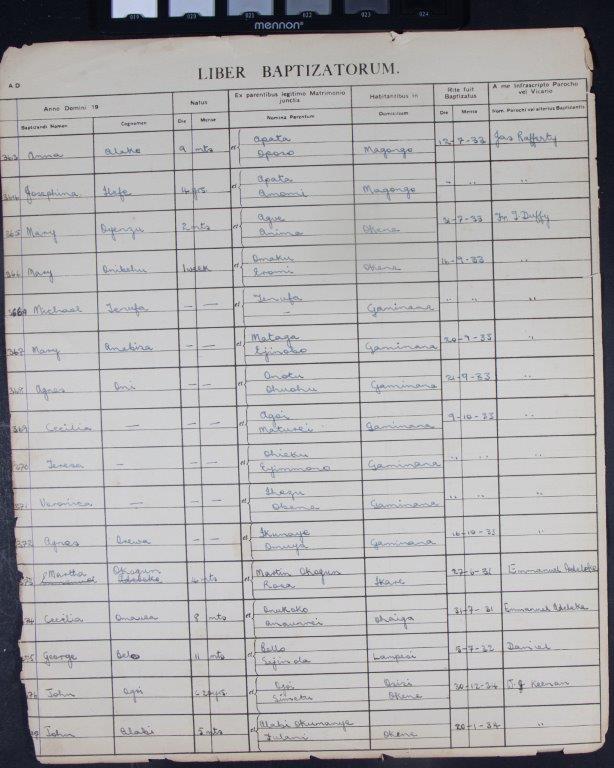 019 020 021 022 023 024
mennon
LIBER BAPTIZATORUM.
A D
Anno Domini 19 Natus Ex parentibus legitimo Matrimonio junctis Habitantibus in Rite fuit Baptizatus A me Infrascripto Parocho vel Vicario
Baptizandi Nomen Cognomen Die Mense Nomina Parentum Domicilium Die Mense Nom. Parochi vel alterius Baptizantis
363 Anna Alako 9 mts et Apata Oporo Magongo 12-7-33 Jas Rafferty
364 Josephina Ilafe 4 yrs et Apata Amomi Magongo " " "
365 Mary Oyenzu 2 mts et Ague Anima Okene 31-7-33 Fr. J Duffy
366 Mary Onikehu 1 week et Omaku Eromi Okene 16-9-33 "
Michael Jerufa — — et Jerufa — Gaminana " " "
367 Mary Anebira — — et Mataga Ejinobo Gaminana 20-9-33 "
368 Agnes Oni — — et Onotu Ohuohu Gaminana 21-9-33 "
369 Cecilia — — — et Agoi Maturei Gaminana 9-10-33 "
370 Teresa — — — et Ohieku Eyimmono Gaminana " " "
371 Veronica — — — et Ihazu Okene Gaminana " " "
372 Agnes Orewa — — et Ikunaye Onuya Gaminana 16-10-33 "
373 Martha Okogun 4 mts et Martin Okogun Rosa Ikare 27-6-31 Emmanuel Adeleke
374 Cecilia Onawa 8 mts et Onukoko Anaunrei Ohaiga 31-7-31 Emmanuel Adeleke
375 George Belo 11 mts et Bello Sijinola Lampesi 5-7-32 Daniel
376 John Ogi 6 days et Ogi Siinetu Osisi Okene 30-12-34 J. Keenan
John Alabi 5 mts et Alabi Okumanye Fulani Okene 20-1-34 "